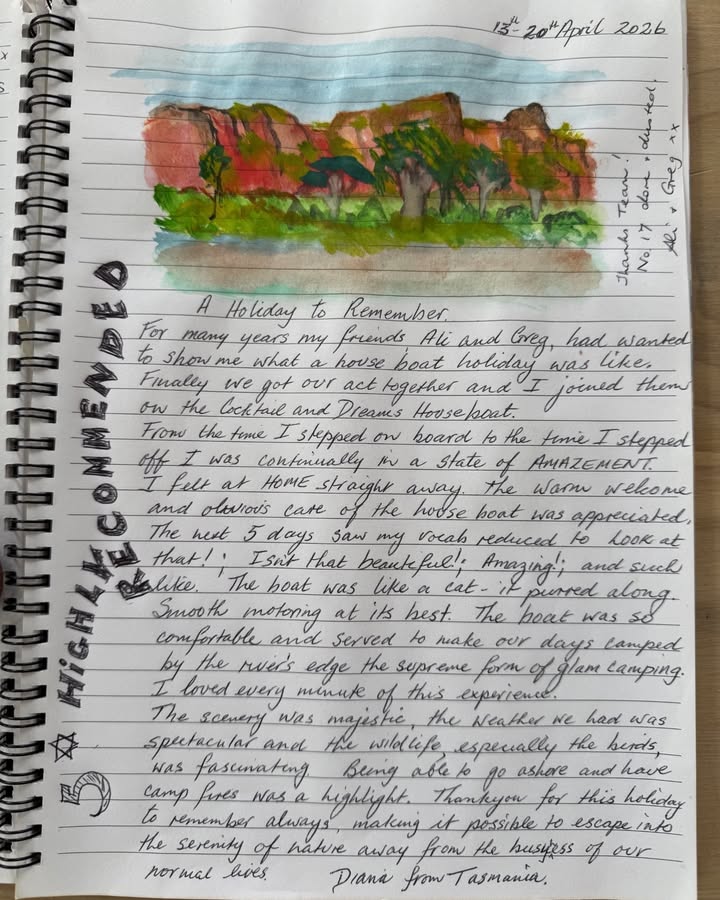 13th - 20th April 2026
Thanks Team!
No. 17 done & dusted.
Ali & Greg xx
A Holiday to Remember.
For many years my friends Ali and Greg, had wanted
to show me what a house boat holiday was like.
Finally we got our act together and I joined them
on the Cocktail and Dreams Houseboat.
From the time I stepped on board to the time I stepped
off I was continually in a state of AMAZEMENT.
I felt at HOME straight away. The warm welcome
and obvious care of the house boat was appreciated.
The next 5 days saw my vocab reduced to Look at
that!; Isn't that beautiful!; Amazing!; and such
like. The boat was like a cat - it purred along.
Smooth motoring at its best. The boat was so
comfortable and served to make our days camped
by the river's edge the supreme form of glam camping.
I loved every minute of this experience.
The scenery was majestic, the weather we had was
spectacular and the wildlife, especially the birds,
was fascinating. Being able to go ashore and have
camp fires was a highlight. Thankyou for this holiday
to remember always, making it possible to escape into
the serenity of nature away from the busyness of our
normal lives. Diana from Tasmania.
HIGHLY RECOMMENDED